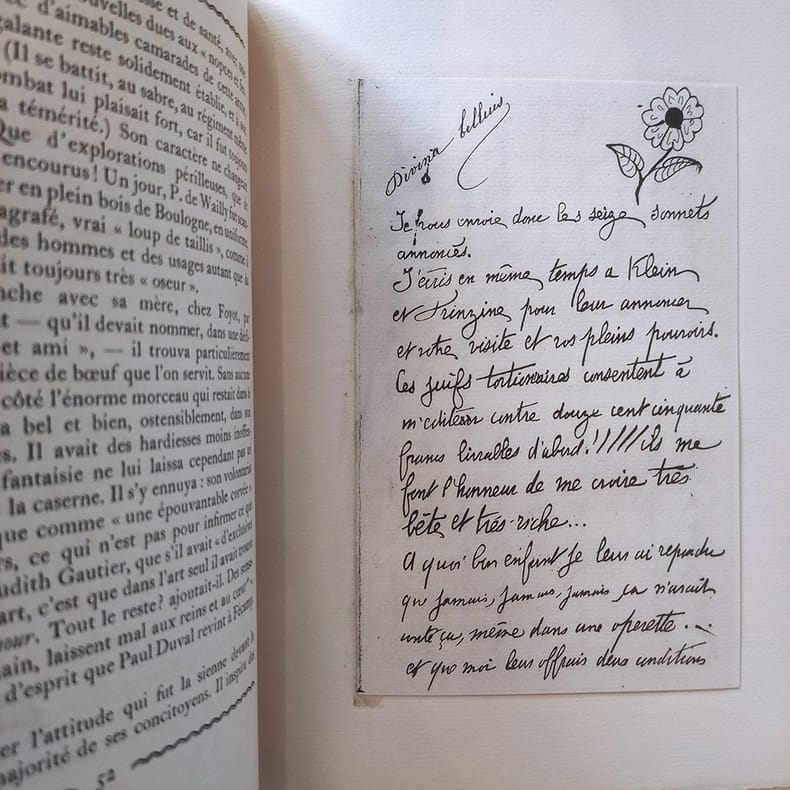 uvelles dues aux « nopces et fes
d'aimables camarades de cette
galante reste solidement établie, et à son
(Il se battit, au sabre, au régiment même
ombat lui plaisait fort, car il fut toujours
a témérité.) Son caractère ne changeait
Que d'explorations périlleuses, que de
encourus ! Un jour, P. de Wailly fut
er en plein bois de Boulogne, en uniforme
agrafé, vrai « loup de taillis », comme
des hommes et des usages autant que de
it toujours très « oseur ».
nche avec sa mère, chez Foyot, par
t — qu'il devait nommer, dans une
et ami », — il trouva particulièrement
ièce de bœuf que l'on servit. Sans aucune
côté l'énorme morceau qui restait dans le
a bel et bien, ostensiblement, dans son
s. Il avait des hardiesses moins inoffen-
fantaisie ne lui laissa cependant pas
la caserne. Il s'y ennuya : son volontariat
que comme « une épouvantable corvée »
rs, ce qui n'est pas pour infirmer ce que
udith Gautier, que s'il avait « d'exclusives
art, c'est que dans l'art seul il avait trouvé
our. Tout le reste ? ajoutait-il. Des sens
ain, laissent mal aux reins et au cœur ».
d'esprit que Paul Duval revint à Fécamp
er l'attitude qui fut la sienne devant la
majorité de ses concitoyens. Il inspira des
52
Divin
Je vous envoie donc les seize sonnets
annoncés.
J'écris en même temps a Klein
et Frinzine pour leur annoncer
et votre visite et vos pleins pouvoirs.
Ces juifs tortionnaires consentent à
m'éditer contre douze cent cinquante
francs livrables d'abord ! //// ils me
font l'honneur de me croire très
bête et très-riche...
A quoi bon enfant je leur ai repondu
que jamais, jamais, jamais ça n'avait
conté ça, même dans une operette...
et que moi leur offrais deux conditions